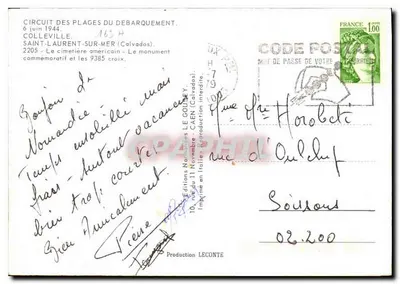 CIRCUIT DES PLAGES DU DEBARQUEMENT.
6 juin 1944.
COLLEVILLE.
SAINT-LAURENT-SUR-MER (Calvados)
2205 - Le cimetière américain - Le monument
commémoratif et les 9385 croix.
163 H
Bonjour de
Normandie
Temps ensoleillé mais
frais. surtout vacances
bien trop courtes
Bien Amicalement
Pierre
Editions Normandes LE GOUBEY
10, rue du 11 Novembre - CAEN (Calvados)
Imprimé en Italie - Reproduction interdite.
FRANCE
1,00
CODE POSTAL
MOT DE PASSE DE VOTRE
Mme Mr
rue d'Oulchy
Soissons
02.200
Production LECONTE